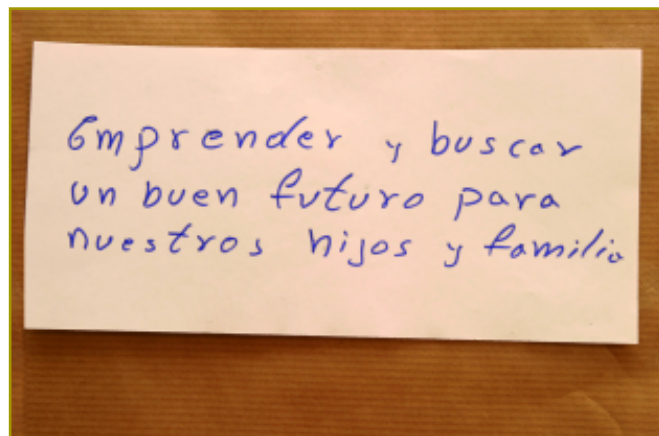 Emprender y buscar
un buen futuro para
nuestros hijos y familia